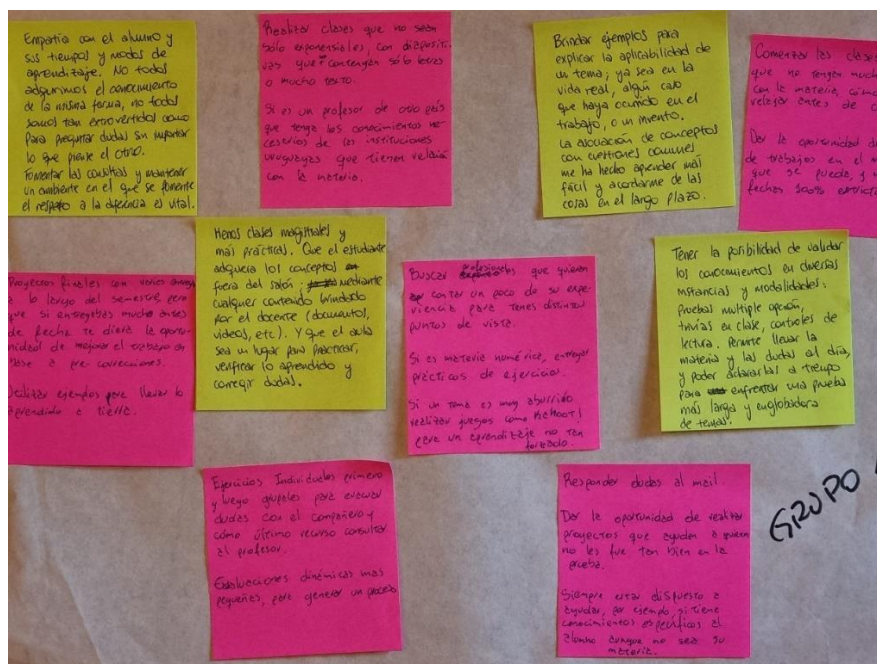 Empatía con el alumno y
sus tiempos y modos de
aprendizaje. No todos
adquirimos el conocimiento
de la misma forma, no todos
somos tan extrovertidos como
para preguntar dudas sin importar
lo que piense el otro.
Fomentar las consultas y mantener
un ambiente en el que se fomente
el respeto a la diferencia es vital.
Realizar clases que no sean
sólo expo, con diapositi
vas que contengan sólo letras
o mucho texto.
Si es un profesor de otro país
que tenga los conocimientos ne
cesarios de las instituciones
uruguayas que tienen relación
con la materia.
Brindar ejemplos para
explicar la aplicabilidad de
un tema; ya sea en la
vida real, algún caso
que haya ocurrido en el
trabajo, o un invento.
La asociación de conceptos
con cuestiones comunes
me ha hecho aprender más
fácil y acordarme de las
cosas en el largo plazo.
Comenzar las clases
que no tengan much
con la materia, cómo
relajar antes de c
Dar la oportunidad d
de trabajos en el m
que se pueda, y n
fechas 100% estrict
Proyectos finales con varias entreg
a lo largo del semestre, pero
que si entregabas mucho antes
de fecha te diera la oportu-
nidad de mejorar el trabajo en
base a pre-correcciones.
Utilizar ejemplos para llevar lo
aprendido a tierra.
Menos clases magistrales y
más prácticas. Que el estudiante
adquiera los conceptos
fuera del salón; mediante
cualquier contenido brindado
por el docente (documentos,
videos, etc). Y que el aula
sea un lugar para practicar,
verificar lo aprendido y
corregir dudas.
Buscar profesionales que quieran
contar un poco de su expe-
riencia para tener distintos
puntos de vista.
Si es materia numérica, entregar
prácticos de ejercicios.
Si un tema es muy aburrido
realizar juegos como Kahoot!
para un aprendizaje no tan
forzado.
Tener la posibilidad de validar
los conocimientos en diversas
instancias y modalidades:
pruebas multiple opción,
trivias en clase, controles de
lectura. Permite llevar la
materia y las dudas al día,
y poder aclararlas a tiempo
para enfrentar una prueba
más larga y englobadora
de temas.
Ejercicios Individuales primero
y luego grupales para evacuar
dudas con el compañero y
cómo último recurso consultar
al profesor.
Evaluaciones dinámicas mas
pequeñas, para generar un proceso
Responder dudas al mail.
Dar la oportunidad de realizar
proyectos que ayuden a quien
no les fue tan bien en la
prueba.
Siempre estar dispuesto a
ayudar, por ejemplo, si tiene
conocimientos específicos al
alumno aunque no sea su
materia.
GRUPO